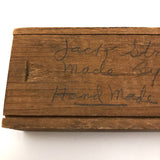 Jack St
Made By
Hand Made